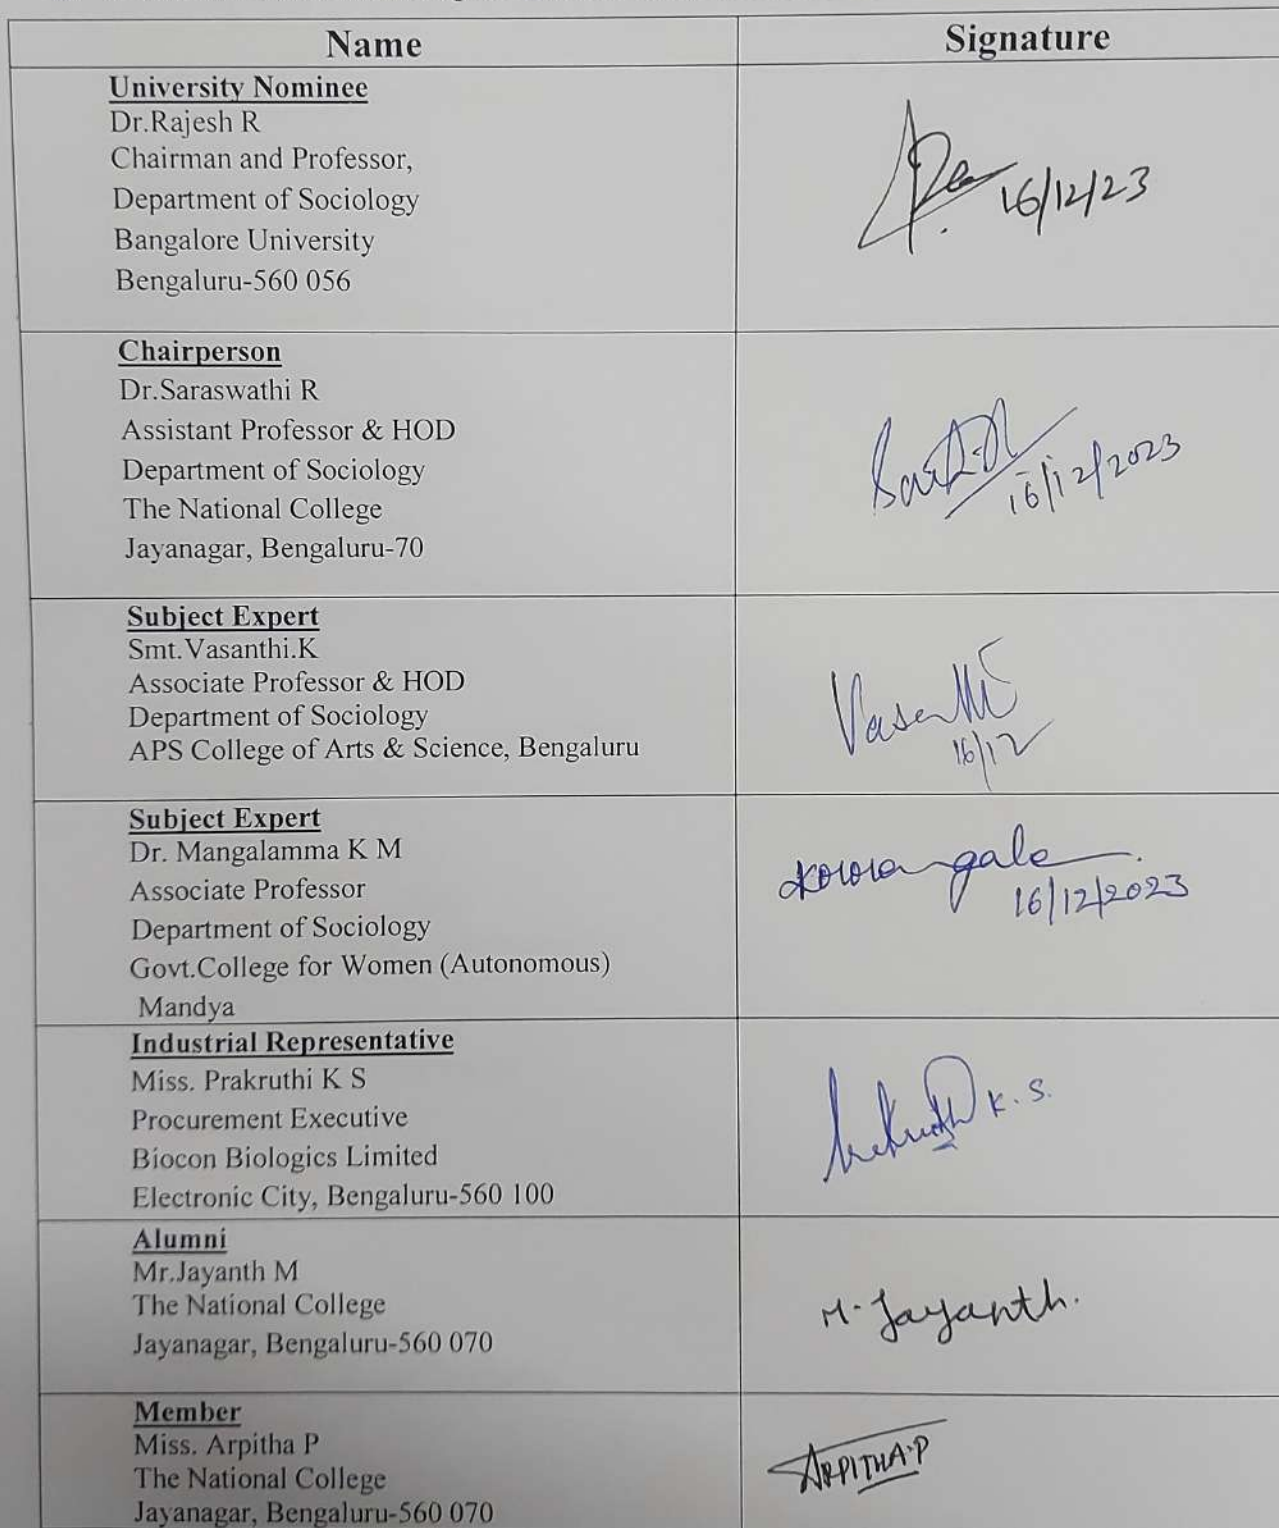 Name
Signature
University Nominee
Dr.Rajesh R
Chairman and Professor,
Department of Sociology
Bangalore University
Bengaluru-560 056
16/12/23
Chairperson
Dr.Saraswathi R
Assistant Professor & HOD
Department of Sociology
The National College
Jayanagar, Bengaluru-70
16/12/2023
Subject Expert
Smt.Vasanthi.K
Associate Professor & HOD
Department of Sociology
APS College of Arts & Science, Bengaluru
Vasanthi
16/12
Subject Expert
Dr. Mangalamma K M
Associate Professor
Department of Sociology
Govt.College for Women (Autonomous)
Mandya
16/12/2023
Industrial Representative
Miss. Prakruthi K S
Procurement Executive
Biocon Biologics Limited
Electronic City, Bengaluru-560 100
K. S.
Alumni
Mr.Jayanth M
The National College
Jayanagar, Bengaluru-560 070
M. Jayanth.
Member
Miss. Arpitha P
The National College
Jayanagar, Bengaluru-560 070
ARPITHA.P